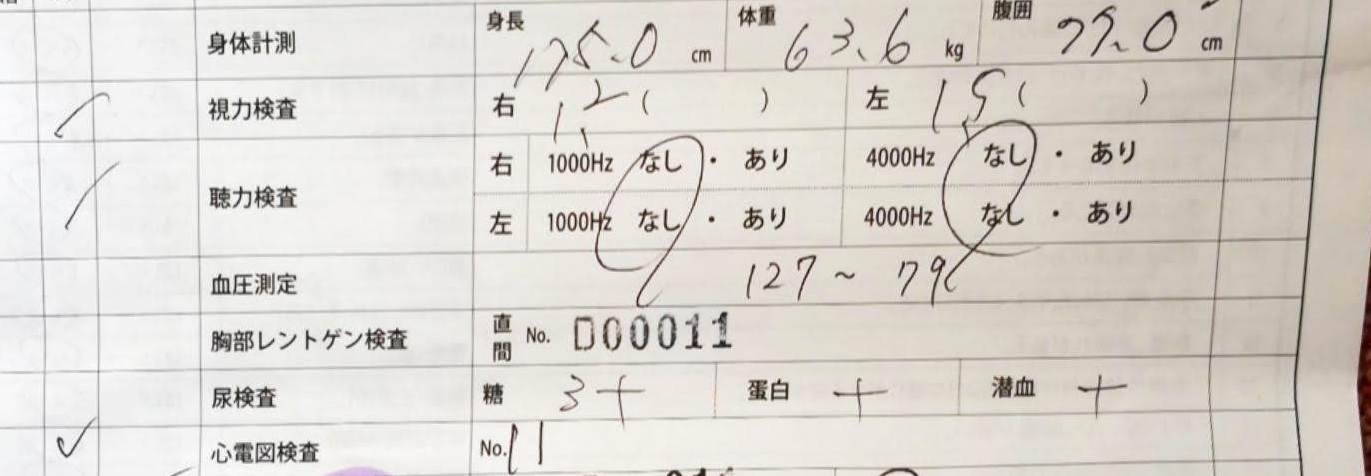 身体計測 身長 175.0 cm 体重 63.6 kg 腹囲 77.0 cm
視力検査 右 1.2 ( ) 左 1.5 ( )
聴力検査 右 1000Hz なし ・ あり 4000Hz なし ・ あり
左 1000Hz なし ・ あり 4000Hz なし ・ あり
血圧測定 127 ~ 79
胸部レントゲン検査 直間 No. D00011
尿検査 糖 3+ 蛋白 + 潜血 +
心電図検査 No. 11